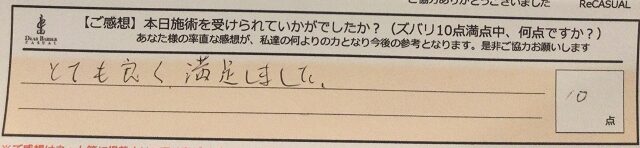 ご協力ありがとうございました ReCASUAL
【ご感想】本日施術を受けられていかがでしたか？（ズバリ10点満点中、何点ですか？）
あなた様の率直な感想が、私達の何よりの力となり今後の参考となります。是非ご協力お願いします
とても良く、満足しました。
10
点